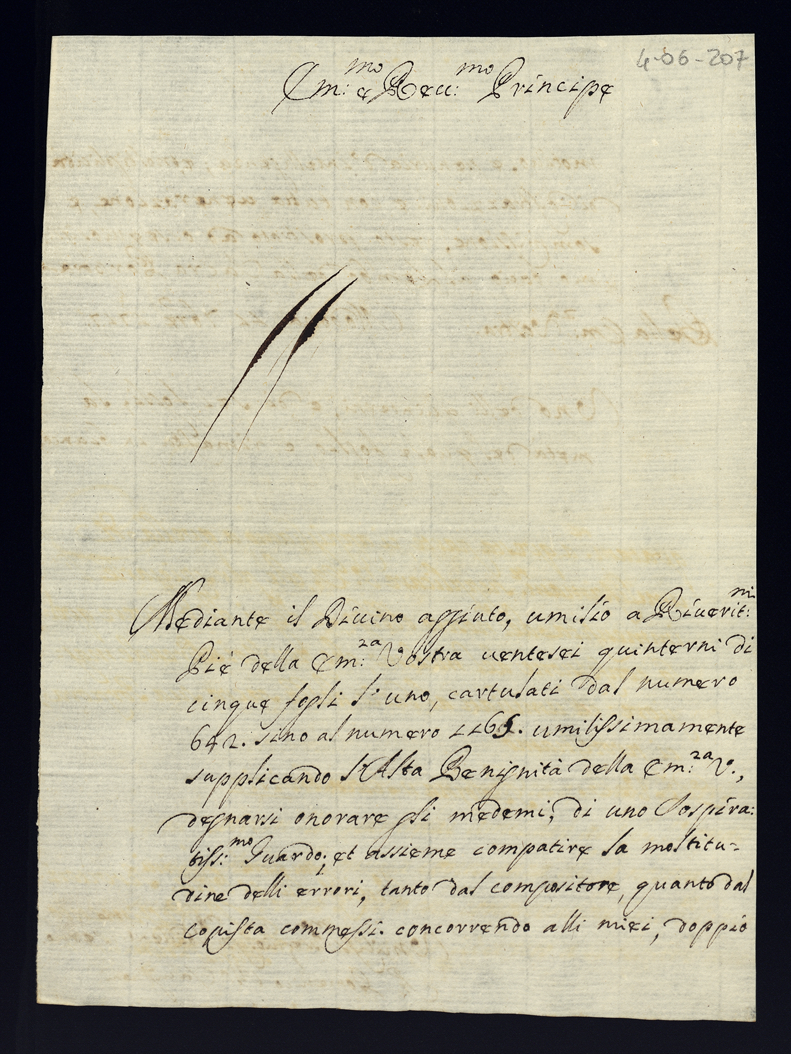 4-06-207
Em:mo e Reu:mo Principe
Mediante il Diuino aggiuto, umilio a Riuerit:mi
Pié della Em:za Vostra uentesei quinterni di
cinque fogli l'uno, cartulati dal numero
642. sino al numero 1165. umilissimamente
supplicando l'Alta Benignità della Em:za V.,
degnarsi onorare gli medemi, di uno Sospira:
tiss:mo Guardo; et assieme compatire la moltitu-
dine delli errori, tanto dal compositore, quanto dal
copista commessi. concorrendo alli miei, doppio